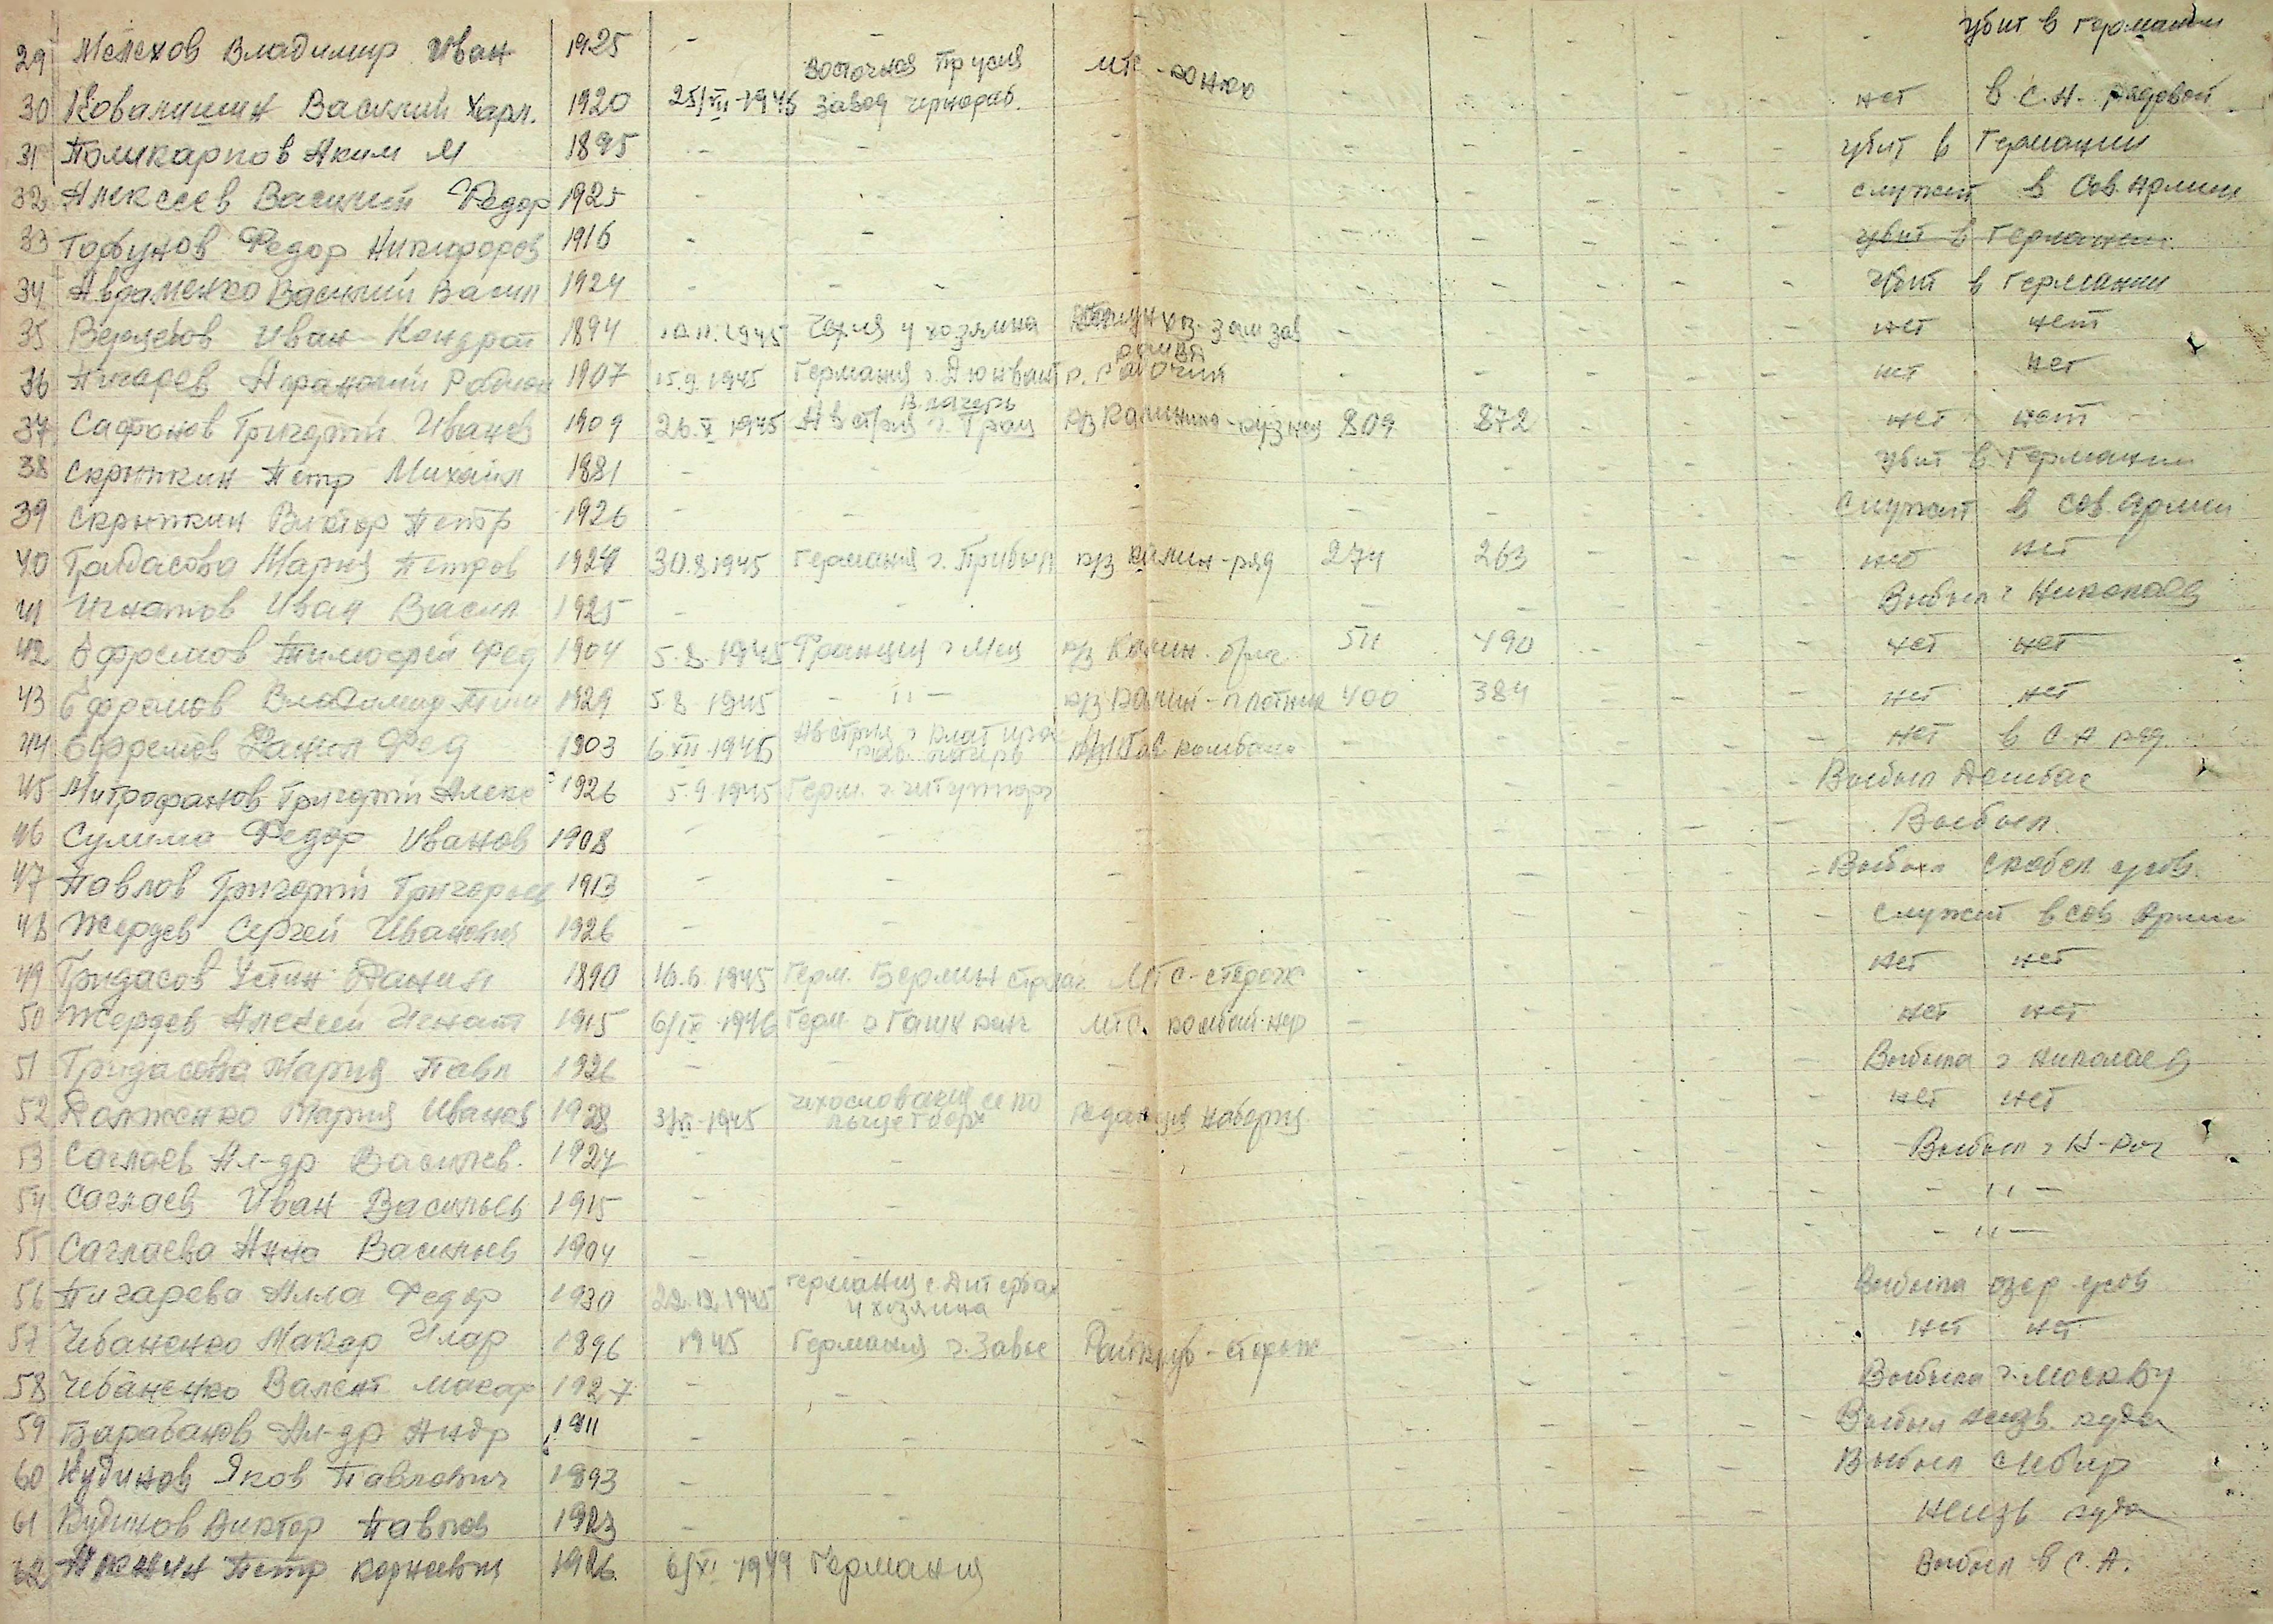 29 Мелехов Владимир Иван 1925 - - - - - - - - убит в Германии
30 Ковалишин Василий Харл. 1920 25/VII-1946 Восточная Прусия завод чернораб. МТС - конюх - - - - - нет в С.А. рядовой
31 Поликарпов Аким М 1895 - - - - - - - - убит в Германии
32 Алексеев Василий Федор 1925 - - - - - - - - служит в Сов. Армии
33 Горбунов Федор Никифоров 1916 - - - - - - - - убит в Германии
34 Авраменко Василий Васил 1924 - - - - - - - - убит в Германии
35 Иван Кондрат 1894 1945 у хозяина зам зав - - - - - нет нет
36 Пигарев Родион 1907 15.9.1945 Германия г. рабочий - - - - - нет нет
37 Сафонов Григорий Иванов 1909 26.X 1945 Австрия г. Грац в лагерь к/з Калинина - кузнец 809 872 - - - нет нет
38 Скрыпкин Петр Михайл 1881 - - - - - - - - убит в Германии
39 Скрыпкин Виктор Петр 1926 - - - - - - - - Служит в Сов. Армии
40 Мария Петров 1924 30.8.1945 Германия г. к/з Калин - ряд 274 263 - - - нет нет
41 Игнатов Иван Васил 1925 - - - - - - - - Выбыл г Николаев
42 Ефремов Тимофей Фед 1904 5.8.1945 Франция г Мец к/з Калин. 511 490 - - - нет нет
43 Ефремов Владимир Тим 1929 5.8 1945 - " - к/з Калин - плотник 400 384 - - - нет нет
44 Ефремов Данил Фед 1903 6 XII-1945 Австрия г лагерь - - - - - нет в С-А ряд.
45 Митрофанов Григорий Алекс 1926 5.9 1945 Герм. г. Штутгарт - - - - - - Выбыл Донбас
46 Сулима Федор Иванов 1908 - - - - - - - - Выбыл.
47 Павлов Григорий Григорьев 1913 - - - - - - - - Выбыл Скобел. усов.
48 Жердев Сергей Иванович 1926 - - - - - - - - служит в Сов Армии
49 Гридасов Устин Данил 1890 16.6.1945 Герм. Берлин МТС - сторож - - - - - нет нет
50 Жердев Алексей Игнат 1915 6/IX-1946 Герм. г МТС. комбайнер - - - - - нет нет
51 Гридасова Мария Павл 1926 - - - - - - - - Выбыла г Николаев
52 Долженко Мария Иванов 1928 1945 Чехословакия Редакция наборщ. - - - - - нет нет
53 Саглаев Ал-др Васильев. 1927 - - - - - - - - Выбыл г Н-Рог
54 Саглаев Иван Васильев 1915 - - - - - - - - - " -
55 Саглаева Анна Васильев 1904 - - - - - - - - - " -
56 Пигарева Алла Федор 1930 22.12.1945 Германия у хозяина - - - - - - Выбыла озер. усов
57 Чебаненко Макар Илар 1896 1945 Германия г. - сторож - - - - - нет нет
58 Чебаненко Валент Макар 1927 - - - - - - - - Выбыла г. Москву
59 Барабанов Ал-др Андр 1911 - - - - - - - - Выбыл неизв. куда
60 Кудинов Яков Павлович 1893 - - - - - - - - Выбыл Сибир
61 Кудинов Виктор Павлов 1923 - - - - - - - - неизв куда
62 Петр 1926 6/XI-1949 Германия Выбыл в С.А.